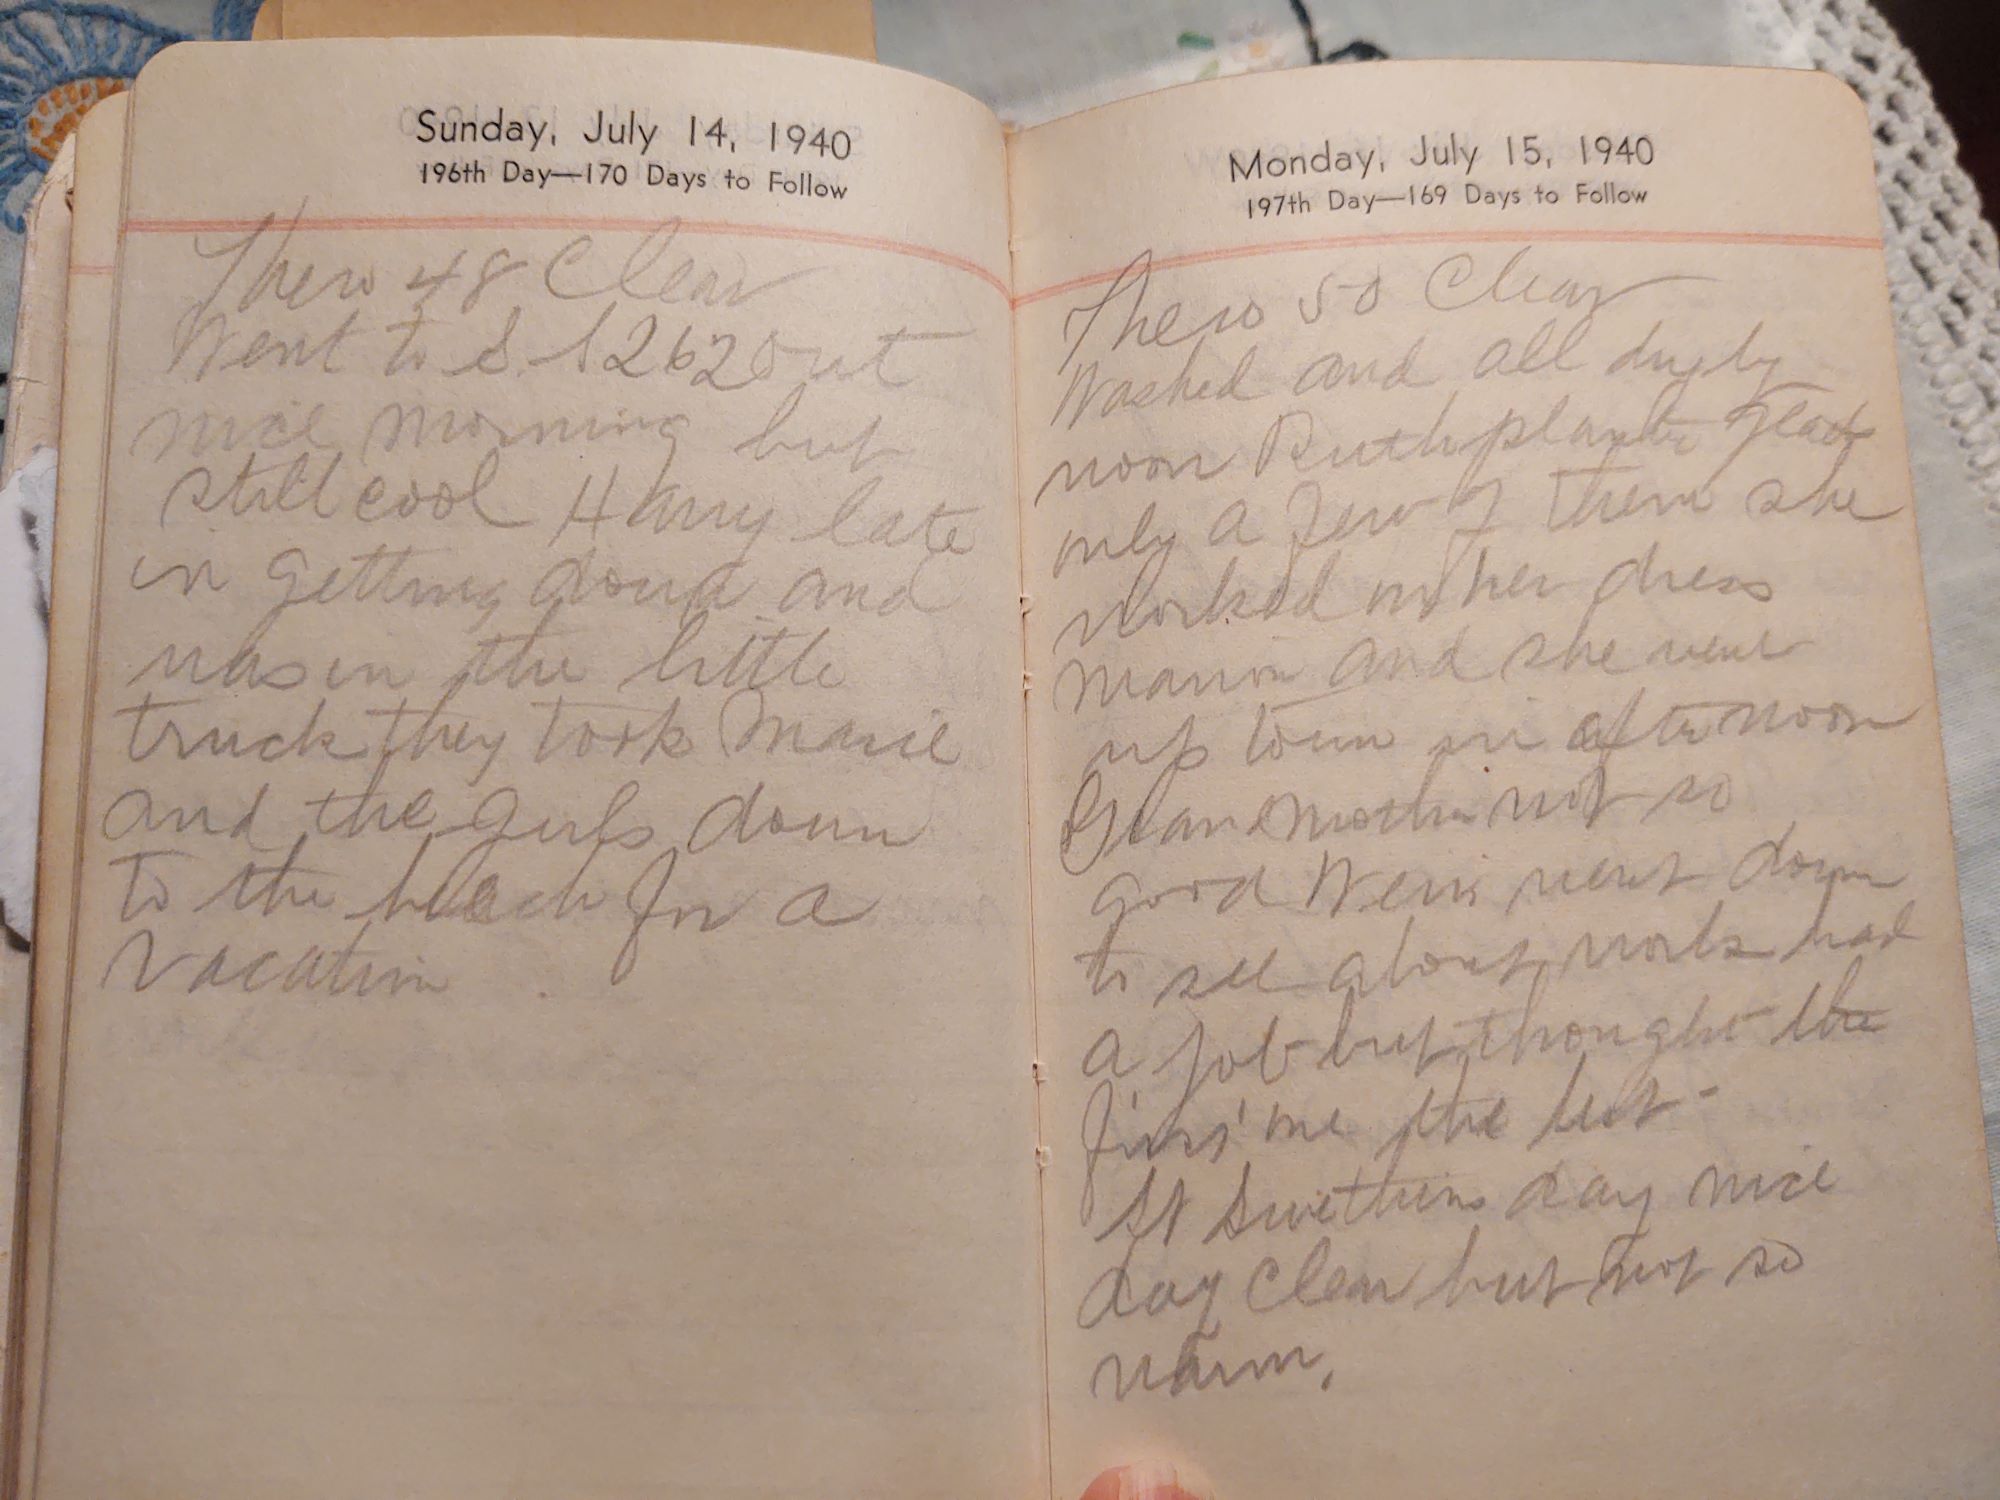 Sunday, July 14, 1940
196th Day—170 Days to Follow
Thero 48 Clear
Went to S. S 262 out
nice morning but
still cool Harry late
in getting down and
was in the little
truck they took Marie
and the girls down
to the beach for a
vacation.
Monday, July 15, 1940
197th Day—169 Days to Follow
Thero 50 Clear
Washed and all dry by
noon Ruth plants
only a few of them she
worked on her dress
Marion and she went
up town in afternoon
Grandmother not so
good went down
to see about work had
a job but thought the
first one the best-
St Swithins day nice
day clear but not so
warm.